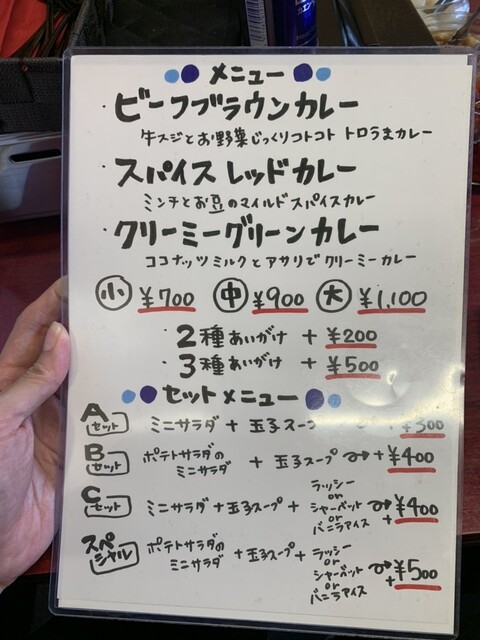 メニュー
・ビーフブラウンカレー
牛スジとお野菜じっくりコトコト トロうまカレー
・スパイスレッドカレー
ミンチとお豆のマイルドスパイスカレー
・クリーミーグリーンカレー
ココナッツミルクとアサリでクリーミーカレー
小 ¥700 中 ¥900 大 ¥1,100
・2種あいがけ + ¥200
・3種あいがけ + ¥500
セットメニュー
Aセット ミニサラダ + 玉子スープ + ¥300
Bセット ポテトサラダのミニサラダ + 玉子スープ + ¥400
Cセット ミニサラダ + 玉子スープ + ラッシー or シャーベット or バニラアイス + ¥400
スペシャル ポテトサラダのミニサラダ + 玉子スープ + ラッシー or シャーベット or バニラアイス + ¥500